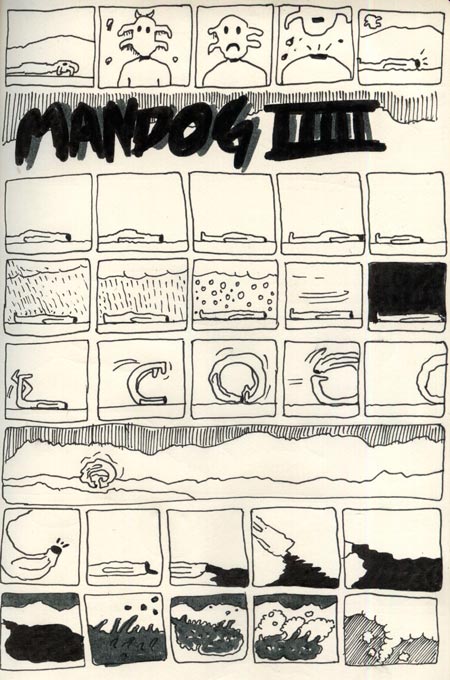 MANDOG IIIII